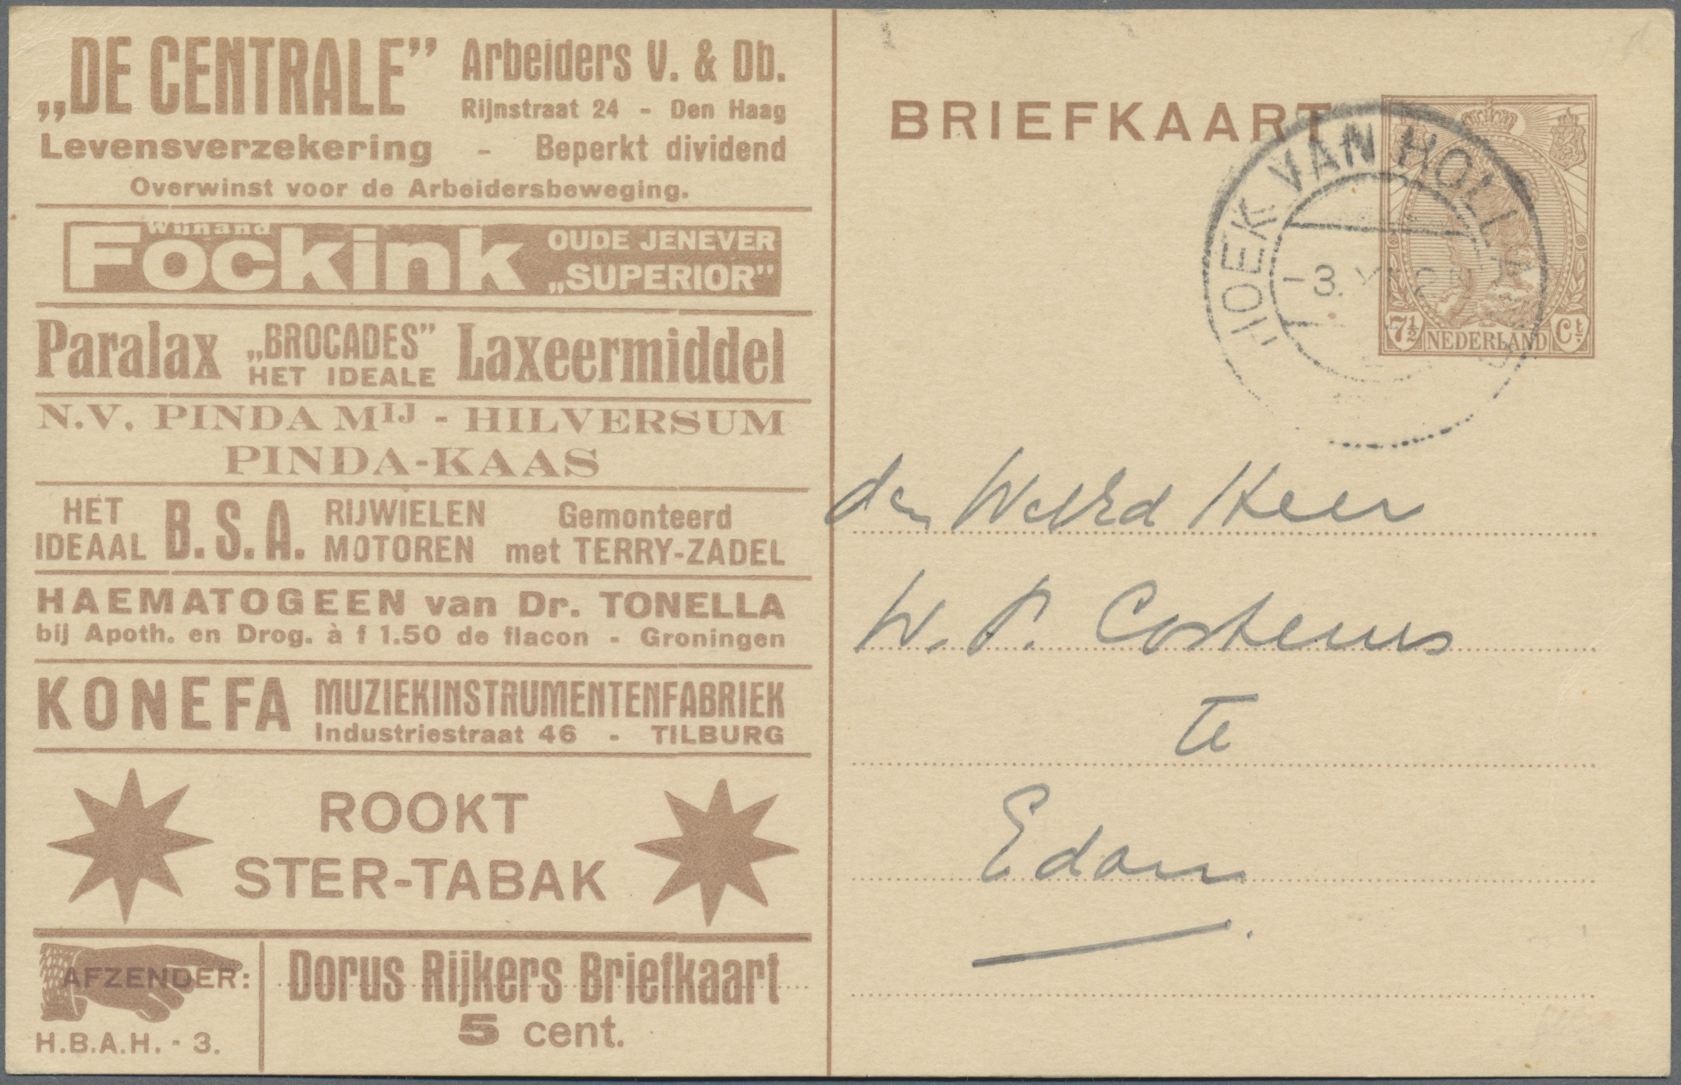 „DE CENTRALE” Arbeiders V. & Db.
Rijnstraat 24 - Den Haag
Levensverzekering - Beperkt dividend
Overwinst voor de Arbeidersbeweging.
Wijnand
Fockink OUDE JENEVER
„SUPERIOR”
Paralax „BROCADES” Laxeermiddel
HET IDEALE
N.V. PINDA MIJ - HILVERSUM
PINDA-KAAS
HET IDEAAL B.S.A. RIJWIELEN MOTOREN Gemonteerd met TERRY-ZADEL
HAEMATOGEEN van Dr. TONELLA
bij Apoth. en Drog. à f 1.50 de flacon - Groningen
KONEFA MUZIEKINSTRUMENTENFABRIEK
Industriestraat 46 - TILBURG
ROOKT
STER-TABAK
AFZENDER:
H.B.A.H. - 3.
Dorus Rijkers Briefkaart
5 cent.
BRIEFKAART
HOEK VAN HOLLAND
-3.
7½ NEDERLAND Ct
den WelEd Heer
W. P. Costerus
te
Edam.